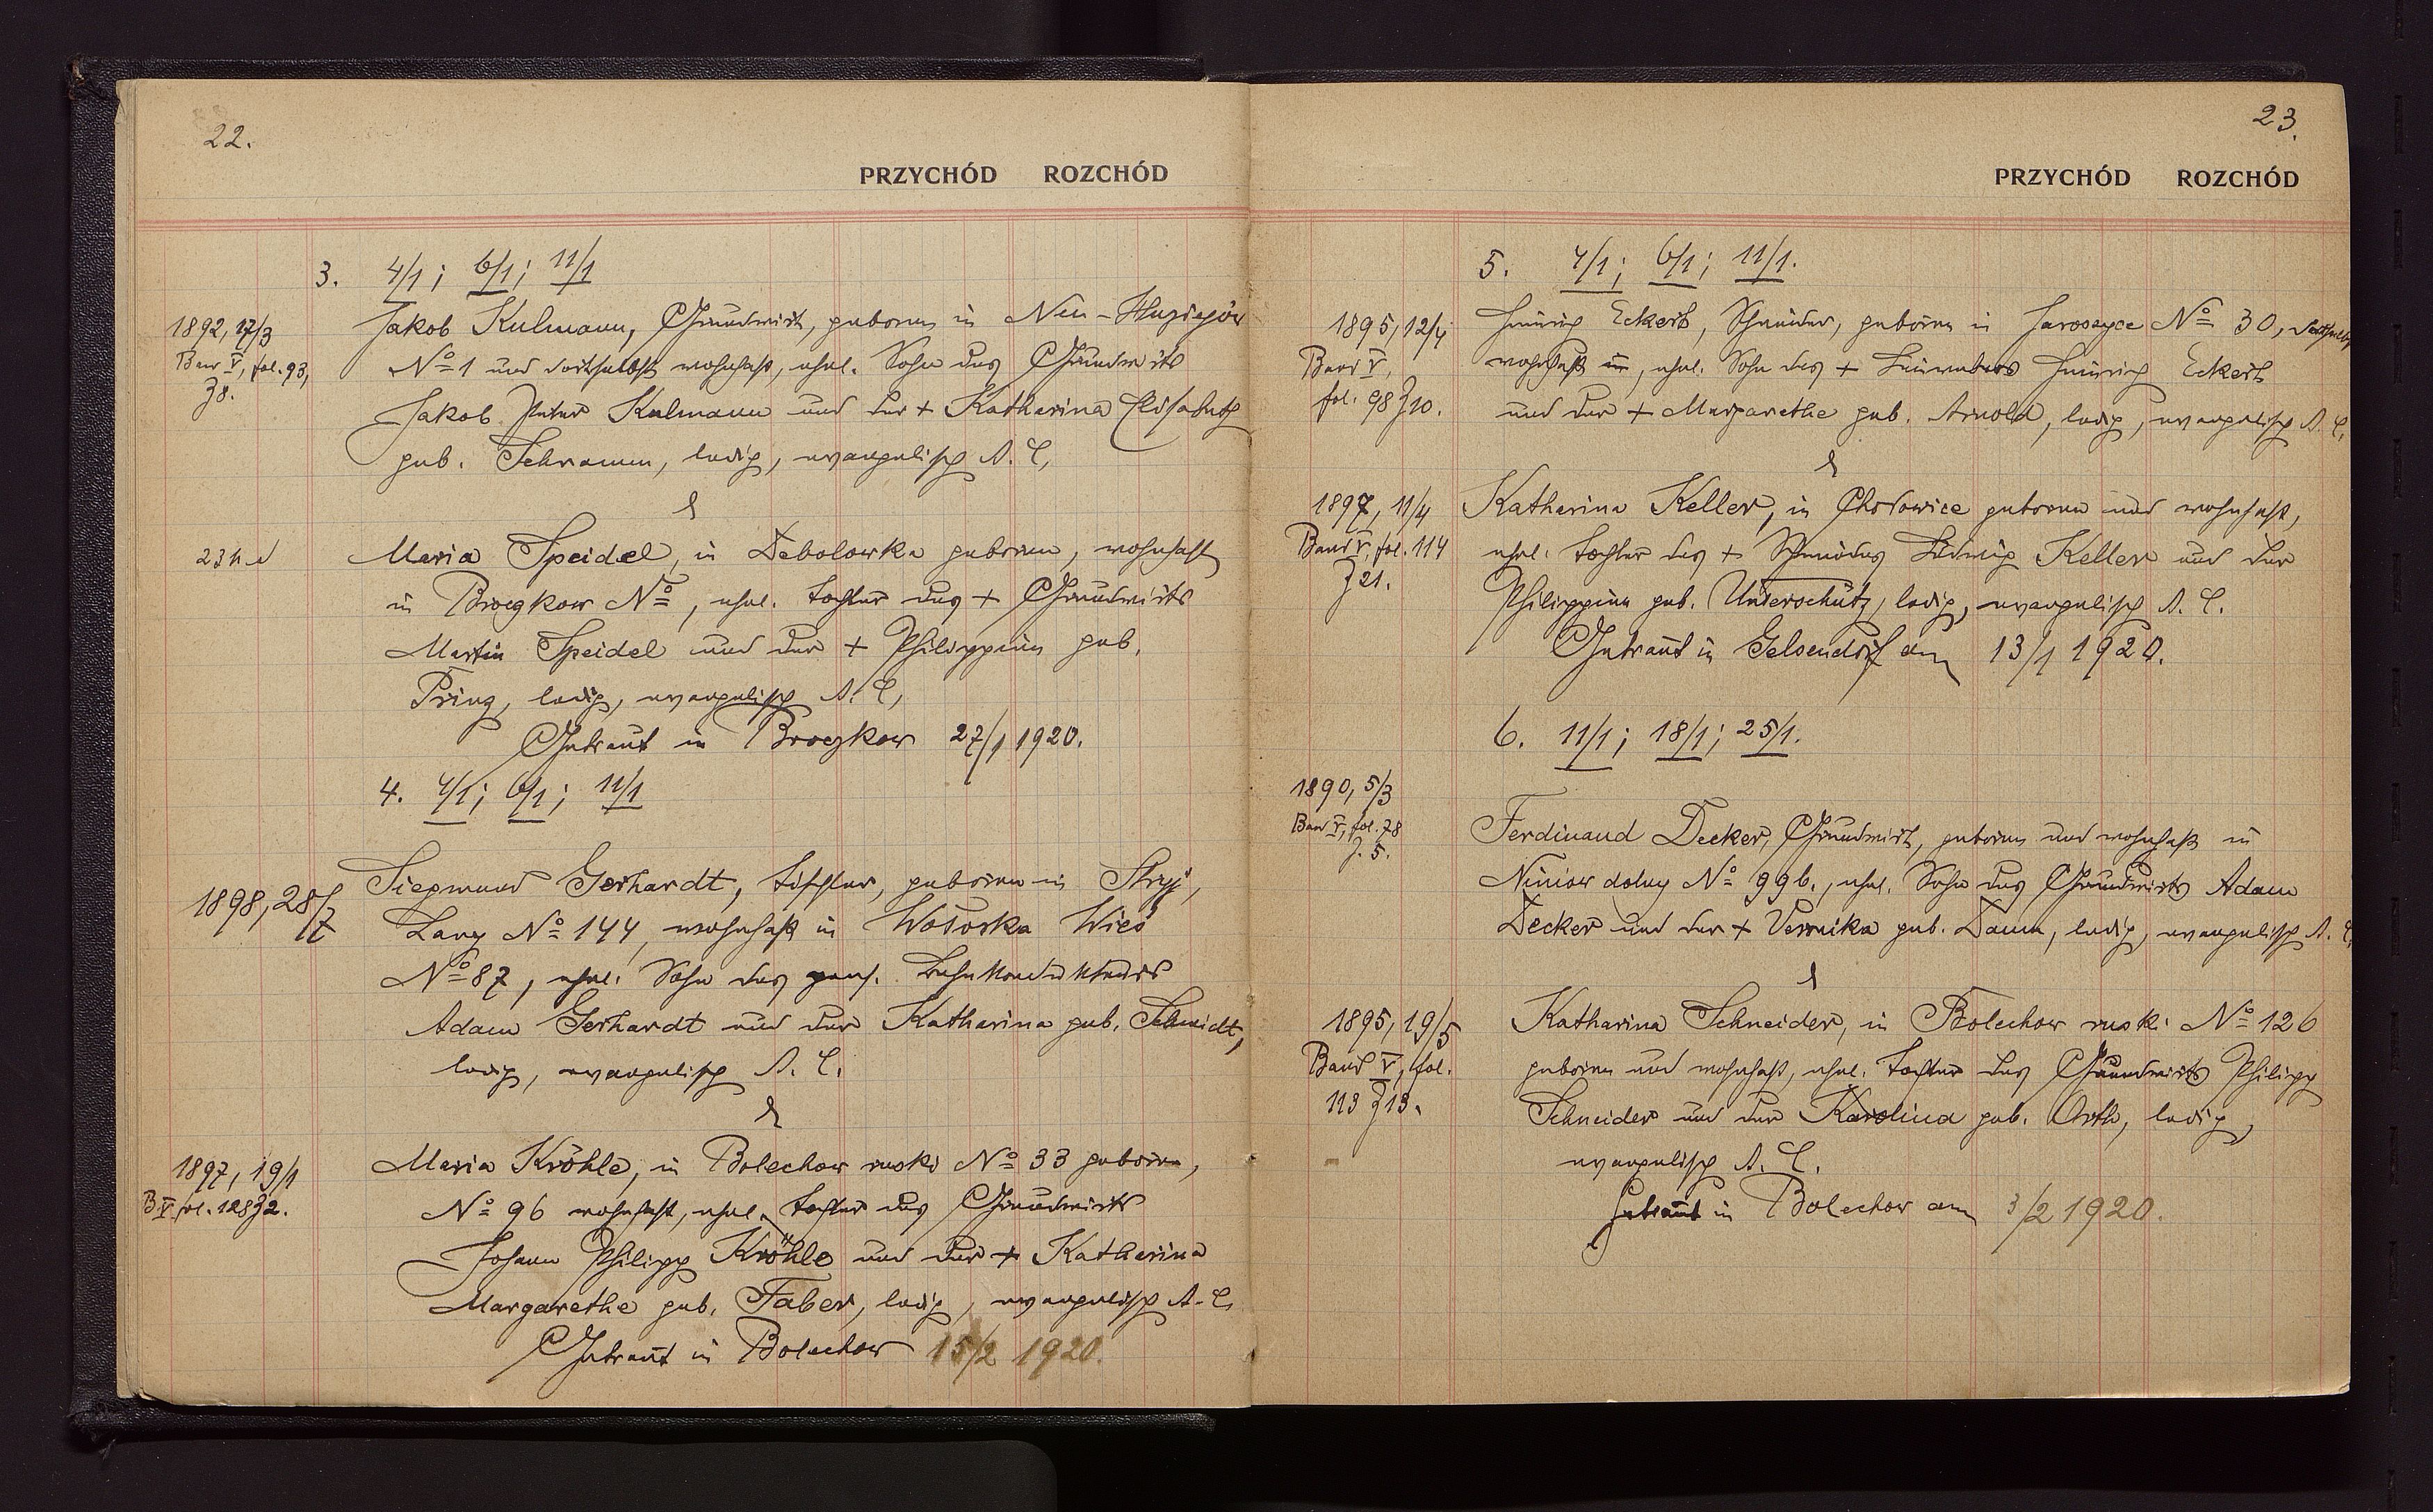 22.
PRZYCHÓD ROZCHÓD
3. 4/1; 6/1; 11/1
1892, 17/3
Band V, fol. 93,
Z 8.
Jakob Kulmann, Grundwirt, geboren in Neu-
No 1 und dortselbst wohnhaft, ehel. Sohn des Grundwirts
Jakob Peter Kulmann und der + Katharina Elisabeth
geb. Schramm, ledig, evangelisch A. C,
&
Maria Speidel, in Debolowka geboren, wohnhaft
in Broczkow No , ehel. Tochter des + Grundwirts
Martin Speidel und der + Philippine geb.
Prinz, ledig, evangelisch A. C,
Getraut in Broczkow 27/1 1920.
4. 4/1; 6/1; 11/1
1898, 28/7
Siegmund Gerhardt, Tischler, geboren in Stryj,
Lany No 144, wohnhaft in Wołoska Wieś
No 87, ehel. Sohn des pens. Bahnkondukteurs
Adam Gerhardt und der Katharina geb. Schmidt,
ledig, evangelisch A. C.
&
1897, 19/1
B V fol. 128 Z 2.
Maria Kröhle, in Bolechow ruski No 33 geboren,
No 96 wohnhaft, ehel. Tochter des Grundwirts
Johann Philipp Kröhle und der + Katharina
Margarethe geb. Faber, ledig, evangelisch A. C,
Getraut in Bolechow 15/2 1920.
23.
PRZYCHÓD ROZCHÓD
5. 4/1; 6/1; 11/1.
1895, 12/4
Band V,
fol. 98 Z 10.
Heinrich Eckert, Schneider, geboren in No 30, dortselbst
wohnhaft in, ehel. Sohn des + Heinrich Eckert
und der + Margarethe geb. Arnold, ledig, evangelisch A. C.
&
1897, 11/4
Band V, fol. 114
Z 21.
Katharina Keller, in Chodowice geboren und wohnhaft,
ehel. Tochter des + Schmiedes Ludwig Keller und der
Philippine geb. Unterschütz, ledig, evangelisch A. C.
Getraut in Gelsendorf am 13/1 1920.
6. 11/1; 18/1; 25/1.
1890, 5/3
Band V, fol. 78
Z. 5.
Ferdinand Decker, Grundwirt, geboren und wohnhaft in
Niniow dolny No 996., ehel. Sohn des Grundwirts Adam
Decker und der + Veronika geb. Daum, ledig, evangelisch A. C,
&
1895, 19/5
Band V, fol.
113 Z 13.
Katharina Schneider, in Bolechow ruski No 126
geboren und wohnhaft, ehel. Tochter des Grundwirts Philipp
Schneider und der Karolina geb. Orth, ledig,
evangelisch A. C.
Getraut in Bolechow am 3/2 1920.